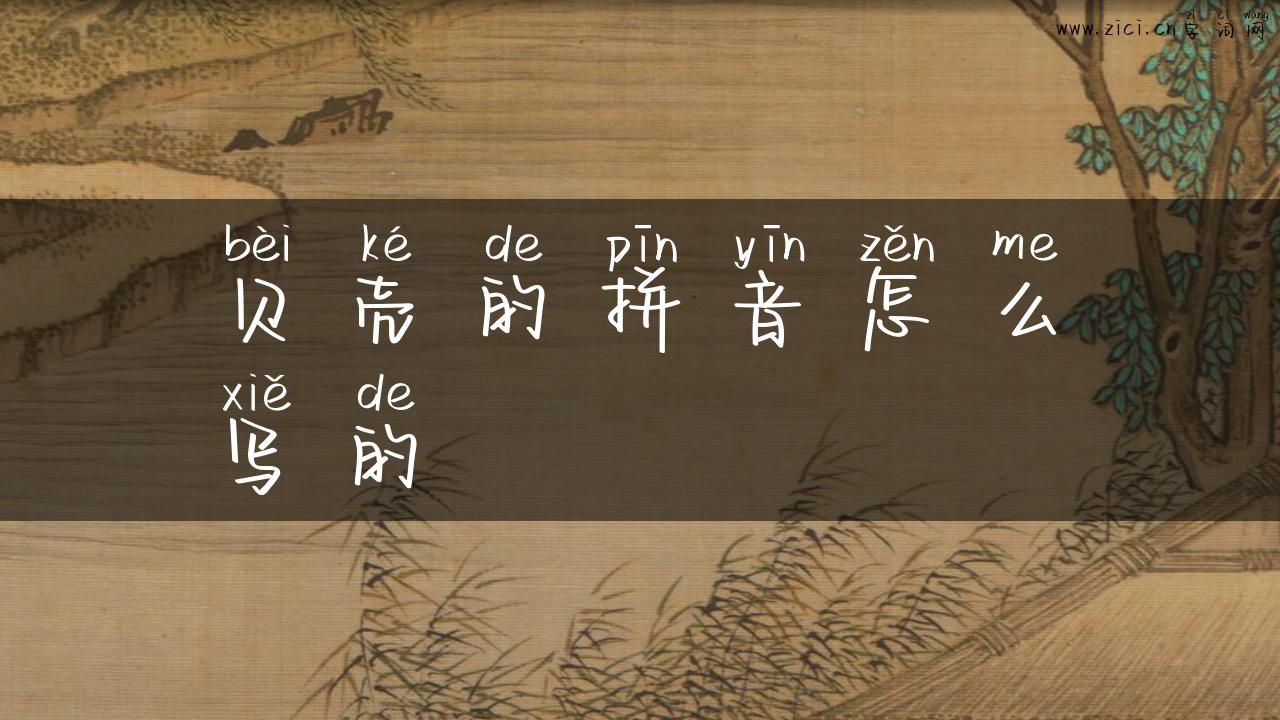 zì cí wǎng
www.zici.cn字词网
bèi ké de pīn yīn zěn me
贝壳的拼音怎么
xiě de
写的